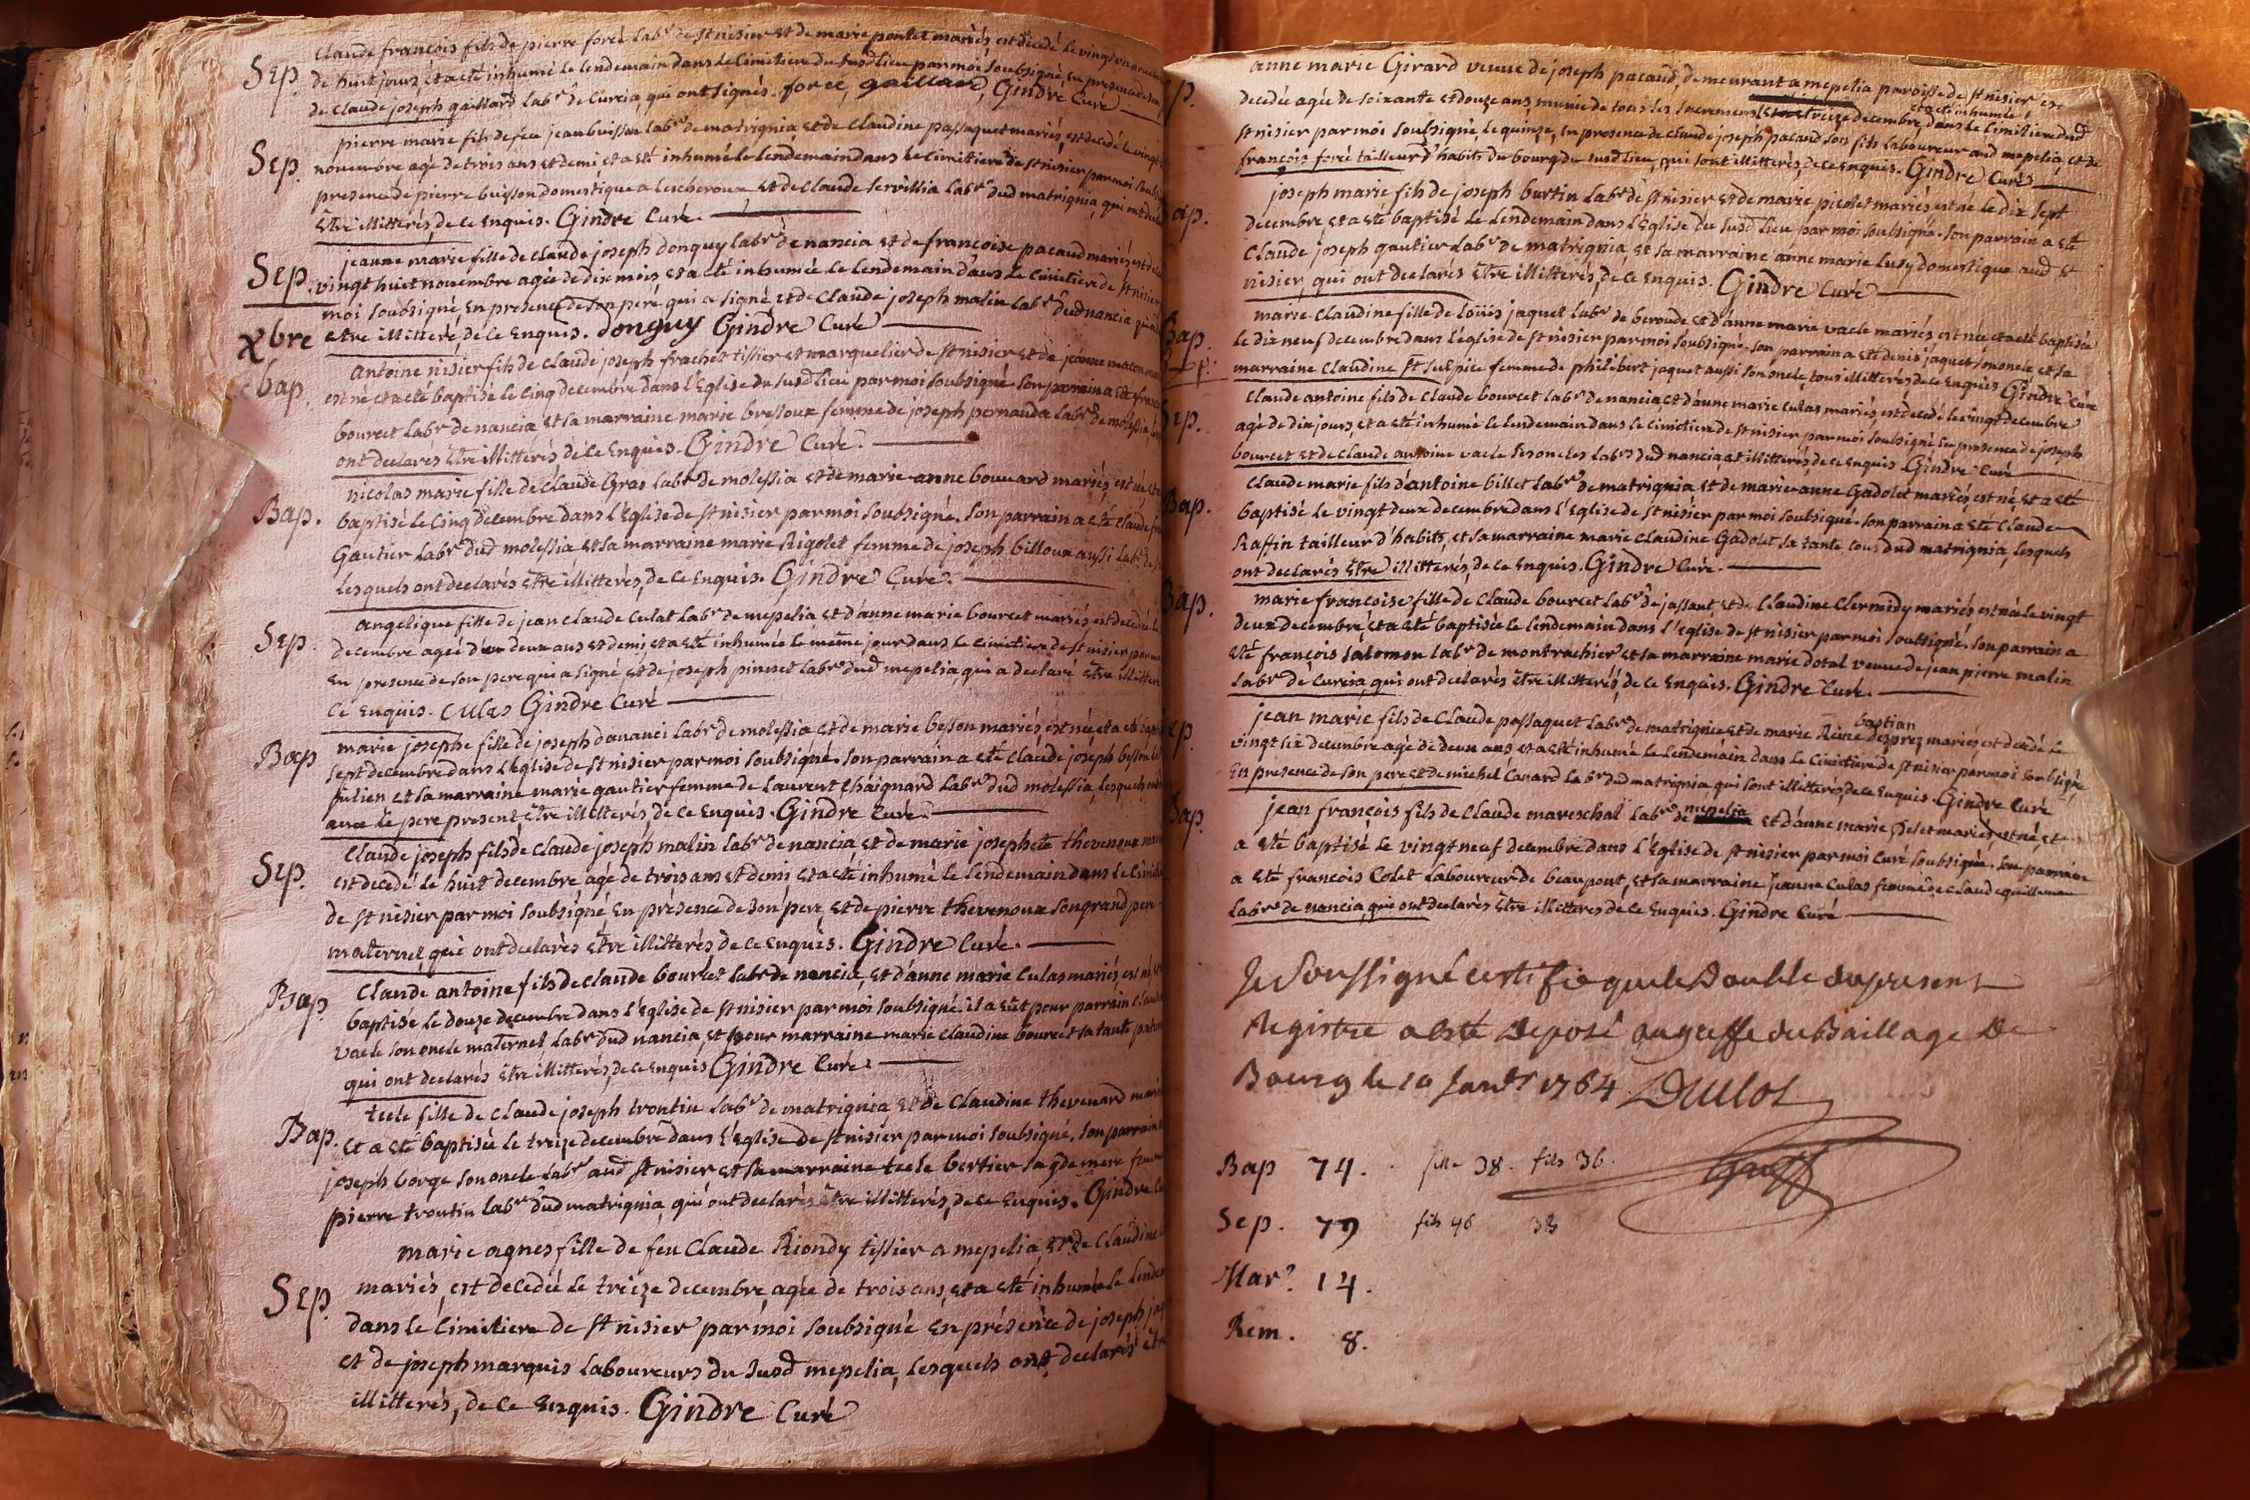 Sep. Claude françois fils de pierre foré lab.r de st nisier et de marie ponlet mariés est decedé le vingt
de huit jours et a eté inhumé le lendemain dans le cimetiere du susd lieu par moi soubsigné en presence de son
de Claude joseph gaillard lab.r de Curcia, qui ont signés. foré, gaillard, Gindre Curé
Sep. pierre marie fils de feu jean buisson lab.r de matrignia et de Claudine passaquet mariés, est decedé le vingt
novembre agé de trois ans et demi et a eté inhumé le lendemain dans le cimitiere de st nisier par moi soubs
presence de pierre buisson domestique a lescheroux et de Claude servillia lab.r dud matrignia, qui ont
être illitterés, de ce enquis. Gindre Curé.
Sep. jeanne marie fille de Claude joseph donguy lab.r de nancia et de françoise pacaud mariés est
vingt huit novembre agée de dix mois et a eté inhumée le lendemain dans le cimitiere de st nisier
moi soubsigné, en presence de son pere qui a signé et de Claude joseph malin lab.r dud nancia
etre illitteré, de ce enquis. donguy Gindre Curé
Xbre
bap. Antoine nisier fils de Claude joseph frachet tissier et marguelier de st nisier et de jeanne
est né et a eté baptisé le cinq decembre dans l'Eglise du susd lieu par moi soubsigné son parrain a eté
bourcet lab.r de nancia et sa marraine marie bressoux femme de joseph pernauda lab.r de molessia
ont declarés être illitterés de ce enquis. Gindre Curé.
Bap. nicolas marie fille de Claude Gras lab.r de molessia et de marie anne bouvard mariés, est né
baptisé le cinq decembre dans l'Eglise de st nisier par moi soubsigné. son parrain a eté Claude
Gautier lab.r dud molessia et sa marraine marie Rigolet femme de joseph billoux aussi lab.r
lesquels ont declarés être illitterés, de ce enquis. Gindre Curé.
Sep. angelique fille de jean Claude Culat lab.r de mepelia et d'anne marie bourcet mariés est decedée
decembre agée de deux ans et demi, et a eté inhumée le même jour dans le cimitiere de st nisier par
en presence de son pere qui a signé et de joseph pinuset lab.r dud mepelia, qui a declaré être illitteré
ce enquis. Culas Gindre Curé
Bap marie josephe fille de joseph dananci lab.r de molessia et de marie besson mariés est née et a eté
sept decembre dans l'Eglise de st nisier par moi soubsigné. son parrain a eté Claude joseph besson
julien et sa marraine marie gautier femme de laurent Chaignard lab.r dud molessia, lesquels
avec le pere present, être illitterés, de ce enquis. Gindre Curé.
Sep. Claude joseph fils de Claude joseph malin lab.r de nancia, et de marie josephete thevenoux
est decedé le huit decembre agé de trois ans et demi, et a eté inhumé le lendemain dans le
de st nisier par moi soubsigné en presence de son pere, et de pierre thevenoux son grand pere
maternel, qui ont declarés être illitterés, de ce enquis. Gindre Curé.
Bap. Claude antoine fils de Claude bourcet lab.r de nancia, et d'anne marie Culas mariés, est né
baptisé le douze decembre dans l'Eglise de st nisier par moi soubsigné. il a eut pour parrain Claude
vacle son oncle maternel lab.r dud nancia, et pour marraine marie Claudine bourcet sa tante
qui ont declarés être illitterés, de ce enquis Gindre Curé.
Bap. tecle fille de Claude joseph trontin lab.r de matrignia, et de Claudine thevenard
et a eté baptisée le treize decembre dans l'Eglise de st nisier par moi soubsigné. son parrain
joseph borge son oncle lab.r aud st nisier et sa marraine tecle bertier sa g.de mere
pierre trontin lab.r dud matrignia, qui ont declarés être illitterés, de ce enquis. Gindre
Sep. marie agnes fille de feu Claude Riondy tissier a mepelia, et de Claudine
mariés, est decedée le treize decembre, agée de trois ans, et a eté inhumée le
dans le cimitiere de st nisier par moi soubsigné en présence de joseph
et de joseph marquis laboureurs du susd mepelia, lesquels ont declarés être
illitterés, de ce enquis. Gindre Curé
anne marie Girard veuve de joseph pacaud, demeurant a mepelia paroisse de st nisier est
decedée agée de soixante et douze ans munie de tous les sacremens le treize decembre, et a eté inhumée dans le cimitiere dud
st nisier par moi soubsigné, le quinze, en presence de Claude joseph pacaud son fils laboureur aud mepelia, et de
françois foré tailleur d'habits du bourg du susd lieu, qui sont illitterés, de ce enquis. Gindre Curé
joseph marie fils de joseph burtin lab.r de st nisier et de marie picolet mariés est né le dix sept
decembre, et a eté baptisé le lendemain dans l'Eglise du susd lieu par moi soubsigné. son parrain a eté
Claude joseph gautier lab.r de matrignia et sa marraine anne marie lusy domestique aud st
nisier, qui ont declarés être illitterés, de ce enquis. Gindre Curé
Bap. marie Claudine fille de loüis jaquet lab.r de beroude, et d'anne marie vacle mariés est née et a eté baptisée
le dix neuf decembre dans l'eglise de st nisier par moi soubsigné. son parrain a eté denis jaquet son oncle et sa
marraine Claudine st sulpice femme de philibert jaquet aussi son oncle tous illitterés de ce enquis. Gindre Curé
Sep. Claude antoine fils de Claude bourcet lab.r de nancia, et d'anne marie Culas mariés, est decedé le vingt decembre
agé de dix jours, et a eté inhumé le lendemain dans le cimitiere de st nisier par moi soubsigné, en presence de joseph
bourcet et de Claude antoine vacle ses oncles lab.rs dud nancia, et illitterés, de ce enquis Gindre Curé
Bap. Claude marie fils d'antoine billet lab.r de matrignia et de marie anne Gadolet mariés, est né, et a eté
baptisé le vingt deux decembre dans l'Eglise de st nisier par moi soubsigné. son parrain a eté Claude
Raffin tailleur d'habits, et sa marraine marie Claudine Gadolet sa tante, tous dud matrignia, lesquels
ont declarés être illitterés, de ce enquis. Gindre Curé.
Bap. marie françoise fille de Claude bourcet lab.r de jassant, et de Claudine Clermidy mariés, est née le vingt
deux decembre, et a eté baptisée le lendemain dans l'Eglise de st nisier par moi soubsigné. son parrain a
eté françois salomon lab.r de montrachier et sa marraine marie dotal veuve de jean pierre malin
lab.r de Curcia, qui ont declarés être illitterés, de ce enquis. Gindre Curé.
Sep. jean marie fils de Claude passaquet lab.r de matrignia et de marie Reine bastian mariés est decedé le
vingt six decembre agé de deux ans et a eté inhumé le lendemain dans le cimitiere de st nisier par moi soubsigné
en presence de son pere, et de michel Canard lab.r dud matrignia qui sont illitterés, de ce enquis. Gindre Curé
Bap. jean françois fils de Claude mareschal lab.r de mepelia et d'anne marie pelet mariés, est né et
a eté baptisé le vingt neuf decembre dans l'Eglise de st nisier par moi Curé soubsigné. son parrain
a eté françois Colet laboureur de beaupont, et sa marraine jeanne Culas femme de Claude guillemau
lab.r de nancia, qui ont declarés être illitterés de ce enquis. Gindre Curé
Je soussigné certifie que le Double du present
Registre a esté deposé au greffe du Baillage de
Bourg le 10 janvr 1764
Bap 74. fille 38. fils 36.
Sep. 79 fils 46 33
Mar.? 14.
Rem. 8.